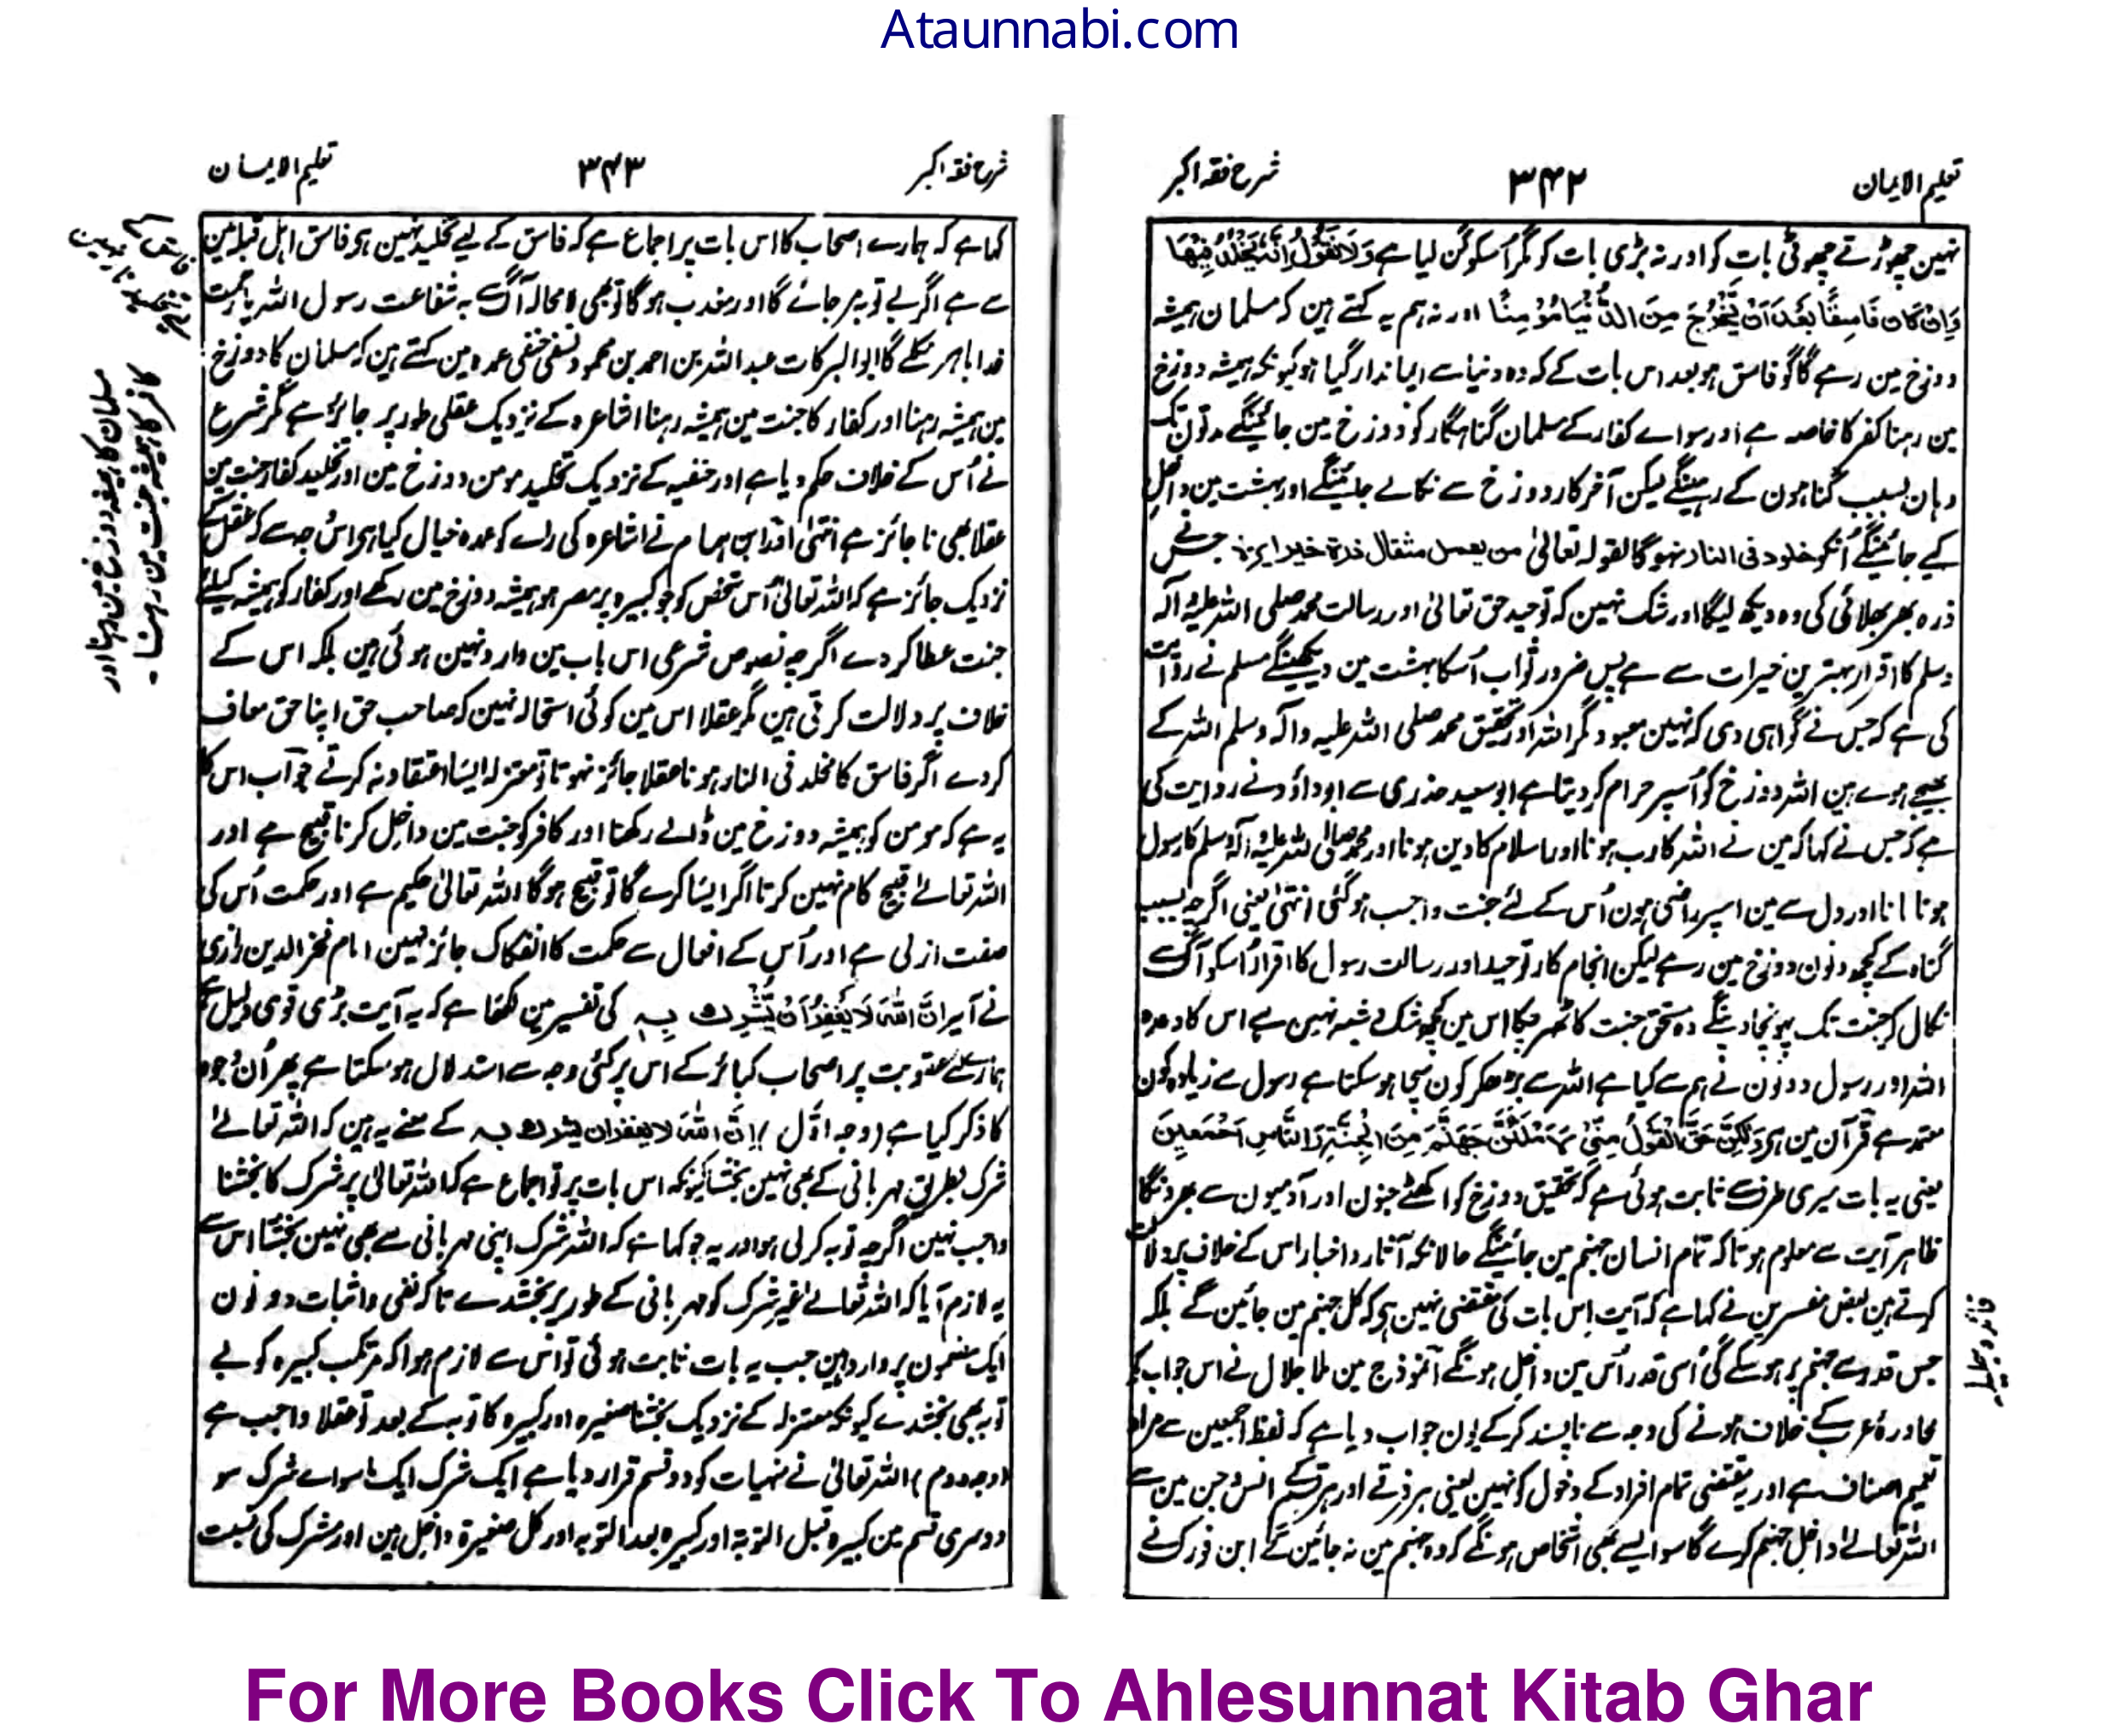 Ataunnabi.com
تعلیم الایمان ۳۴۲ شرح فقہ اکبر
نہین چھوڑتے چھوٹی بات کو اور نہ بڑی بات کو مگر اُسکو گن لیا ہے وَلَا نَقُوْلُ اِنَّہٗ یُخَلَّدُ فِیْھَا
وَاِنْ کَانَ فَاسِقًا بَعْدَ اَنْ یَّخْرُجَ مِنَ الدُّنْیَا مُؤْمِنًا اور نہ ہم یہ کہتے ہین کہ مسلمان ہمیشہ
دوزخ مین رہے گا گو فاسق ہو بعد اس بات کے کہ وہ دنیا سے ایماندار گیا ہو کیونکہ ہمیشہ دوزخ
مین رہنا کفر کا خاصہ ہے اور سواے کفار کے مسلمان گناہگار گو دوزخ مین جائینگے مدتون تک
وہان بسبب گناہون کے رہینگے لیکن آخرکار دوزخ سے نکالے جائینگے اور بہشت مین داخل
کیے جائینگے اُنکو خلود فی النار نہوگا لقولہ تعالیٰ من یعمل مثقال ذرۃ خیرا یرہ جس نے
ذرہ بھر بھلائی کی وہ دیکھ لیگا اور شک نہین کہ توحید حق تعالیٰ اور رسالت محمد صلی اللہ علیہ وآلہ
وسلم کا اقرار بہترین خیرات سے ہے پس ضرور ثواب اُسکا بہشت مین دیکھینگے مسلم نے روایت
کی ہے کہ جس نے گواہی دی کہ نہین معبود مگر اللہ اور تحقیق محمد صلی اللہ علیہ وآلہ وسلم اللہ کے
بھیجے ہوے ہین اللہ دوزخ کو اُسپر حرام کر دیتا ہے ابو سعید خدری سے ابو داؤد نے روایت کی
ہے کہ جس نے کہا کہ مین نے اللہ کا رب ہونا اور اسلام کا دین ہونا اور محمد صلی اللہ علیہ وآلہ وسلم کا رسول
ہونا مانا اور دل سے مین اسپر راضی ہون اُس کے لئے جنت واجب ہوگئی انتہیٰ یعنی اگرچہ بسبب
گناہ کے کچھ دنون دوزخ مین رہے لیکن انجام کار توحید اور رسالت رسول کا اقرار اُسکو آگ سے
نکال کر جنت تک پہونچا دینگے وہ مستحق جنت کا ٹھہر چکا اس مین کچھ شک و شبہ نہین ہے اس کا وعدہ
اللہ اور رسول دونون نے ہم سے کیا ہے اللہ سے بڑھکر کون سچا ہو سکتا ہے رسول سے زیادہ کون
معتمد ہے قرآن مین ہی وَلٰکِنْ حَقَّ الْقَوْلُ مِنِّیْ لَاَمْلَئَنَّ جَھَنَّمَ مِنَ الْجِنَّۃِ وَالنَّاسِ اَجْمَعِیْنَ
یعنی یہ بات میری طرف سے ثابت ہوئی ہے کہ تحقیق دوزخ کو اکھٹے جنون اور آدمیون سے بھر دونگا
ظاہر آیت سے معلوم ہوتا کہ تمام انسان جہنم مین جائینگے حالانکہ آثار و اخبار اس کے خلاف پر دلالت
کرتے ہین بعض مفسرین نے کہا ہے کہ آیت اس بات کی مقتضی نہین ہی کہ کل جہنم مین جائین گے بلکہ
جس قدر سے جہنم پر ہوسکے گی اُسی قدر اُس مین داخل ہونگے انموذج مین ملا جلال نے اس جواب کو
محاورۂ عرب کے خلاف ہونے کی وجہ سے ناپسند کرکے یون جواب دیا ہے کہ لفظ اجمعین سے مراد
تعمیم اصناف ہے اور یہ مقتضی تمام افراد کے دخول کو نہین یعنی ہر فرقے اور ہر قسم انس و جن مین سے
اللہ تعالےٰ داخل جہنم کرے گا سو ایسے بھی اشخاص ہونگے کہ وہ جہنم مین نہ جائین گے ابن فورک نے
فائدہ جلیلہ
شرح فقہ اکبر ۳۴۳ تعلیم الایمان
کہا ہے کہ ہمارے اصحاب کا اس بات پر اجماع ہے کہ فاسق کے لیے تخلید نہین ہی فاسق اہل قبلہ مین
سے ہے اگر بے توبہ مر جائے گا اور معذب ہوگا تو بھی لامحالہ آگ سے بہ شفاعت رسول اللہ یا رحمت
خدا باہر نکلے گا ابوالبرکات عبد اللہ بن احمد بن محمود نسفی حنفی عمدہ مین کہتے ہین کہ مسلمان کا دوزخ
مین ہمیشہ رہنا اور کفار کا جنت مین ہمیشہ رہنا اشاعرہ کے نزدیک عقلی طور پر جائز ہے مگر شرع
نے اُس کے خلاف حکم دیا ہے اور حنفیہ کے نزدیک تخلید مومن دوزخ مین اور تخلید کفار جنت مین
عقلا بھی ناجائز ہے انتہیٰ اور ابن ہمام نے اشاعرہ کی راے کو عمدہ خیال کیا ہی اس وجہ سے کہ عقل کے
نزدیک جائز ہے کہ اللہ تعالیٰ اُس شخص کو جو کبیرہ پر مصر ہو ہمیشہ دوزخ مین رکھے اور کفار کو ہمیشہ کیلئے
جنت عطا کر دے اگرچہ نصوص شرعی اس باب مین وارد نہین ہوئی ہین بلکہ اس کے
خلاف پر دلالت کرتی ہین مگر عقلا اس مین کوئی استحالہ نہین کہ صاحب حق اپنا حق معاف
کر دے اگر فاسق کا مخلد فی النار ہونا عقلا جائز نہوتا تو معتزلہ ایسا اعتقاد نہ کرتے جواب اس کا
یہ ہے کہ مومن کو ہمیشہ دوزخ مین ڈالے رکھنا اور کافر کو جنت مین داخل کرنا قبیح ہے اور
اللہ تعالےٰ قبیح کام نہین کرتا اگر ایسا کرے گا تو قبیح ہوگا اللہ تعالیٰ حکیم ہے اور حکمت اُس کی
صفت ازلی ہے اور اُس کے افعال سے حکمت کا انفکاک جائز نہین امام فخر الدین رازی
نے آیہ اِنَّ اللّٰہَ لَا یَغْفِرُ اَنْ یُّشْرِکَ بِہٖ کی تفسیر مین لکھا ہے کہ یہ آیت بڑی قوی دلیل ہے
ہمارے لئے عقوبت پر اصحاب کبائر کے اس پر کئی وجہ سے استدلال ہو سکتا ہے پھر اُن وجوہ
کا ذکر کیا ہے (وجہ اوّل) اِنَّ اللّٰہَ لا یغفر ان یشرک بہ کے معنے یہ ہین کہ اللہ تعالےٰ
شرک بطریق مہربانی کے بھی نہین بخشتا کیونکہ اس بات پر تو اجماع ہے کہ اللہ تعالیٰ پر شرک کا بخشنا
واجب نہین اگرچہ توبہ کر لی ہو اور یہ جو کہا ہے کہ اللہ شرک اپنی مہربانی سے بھی نہین بخشتا اس سے
یہ لازم آیا کہ اللہ تعالےٰ غیر شرک کو مہربانی کے طور پر بخشدے تاکہ نفی و اثبات دونون
ایک مضمون پر وارد ہین جب یہ بات ثابت ہوئی تو اس سے لازم ہوا کہ مرتکب کبیرہ کو بے
توبہ بھی بخشدے کیونکہ معتزلہ کے نزدیک بخشنا صغیرہ اور کبیرہ کا توبہ کے بعد تو عقلا واجب ہے
(وجہ دوم) اللہ تعالیٰ نے منہیات کو دو قسم قرار دیا ہے ایک شرک ایک ماسواے شرک سو
دوسری قسم مین کبیرہ قبل التوبۃ اور کبیرہ بعد التوبہ اور کل صغیرۃ داخل ہین اور مشرک کی نسبت
فاسق کے
مسلمان کا ہمیشہ دوزخ مین رہنا اور
کافر کا ہمیشہ جنت مین رہنا۔
For More Books Click To Ahlesunnat Kitab Ghar